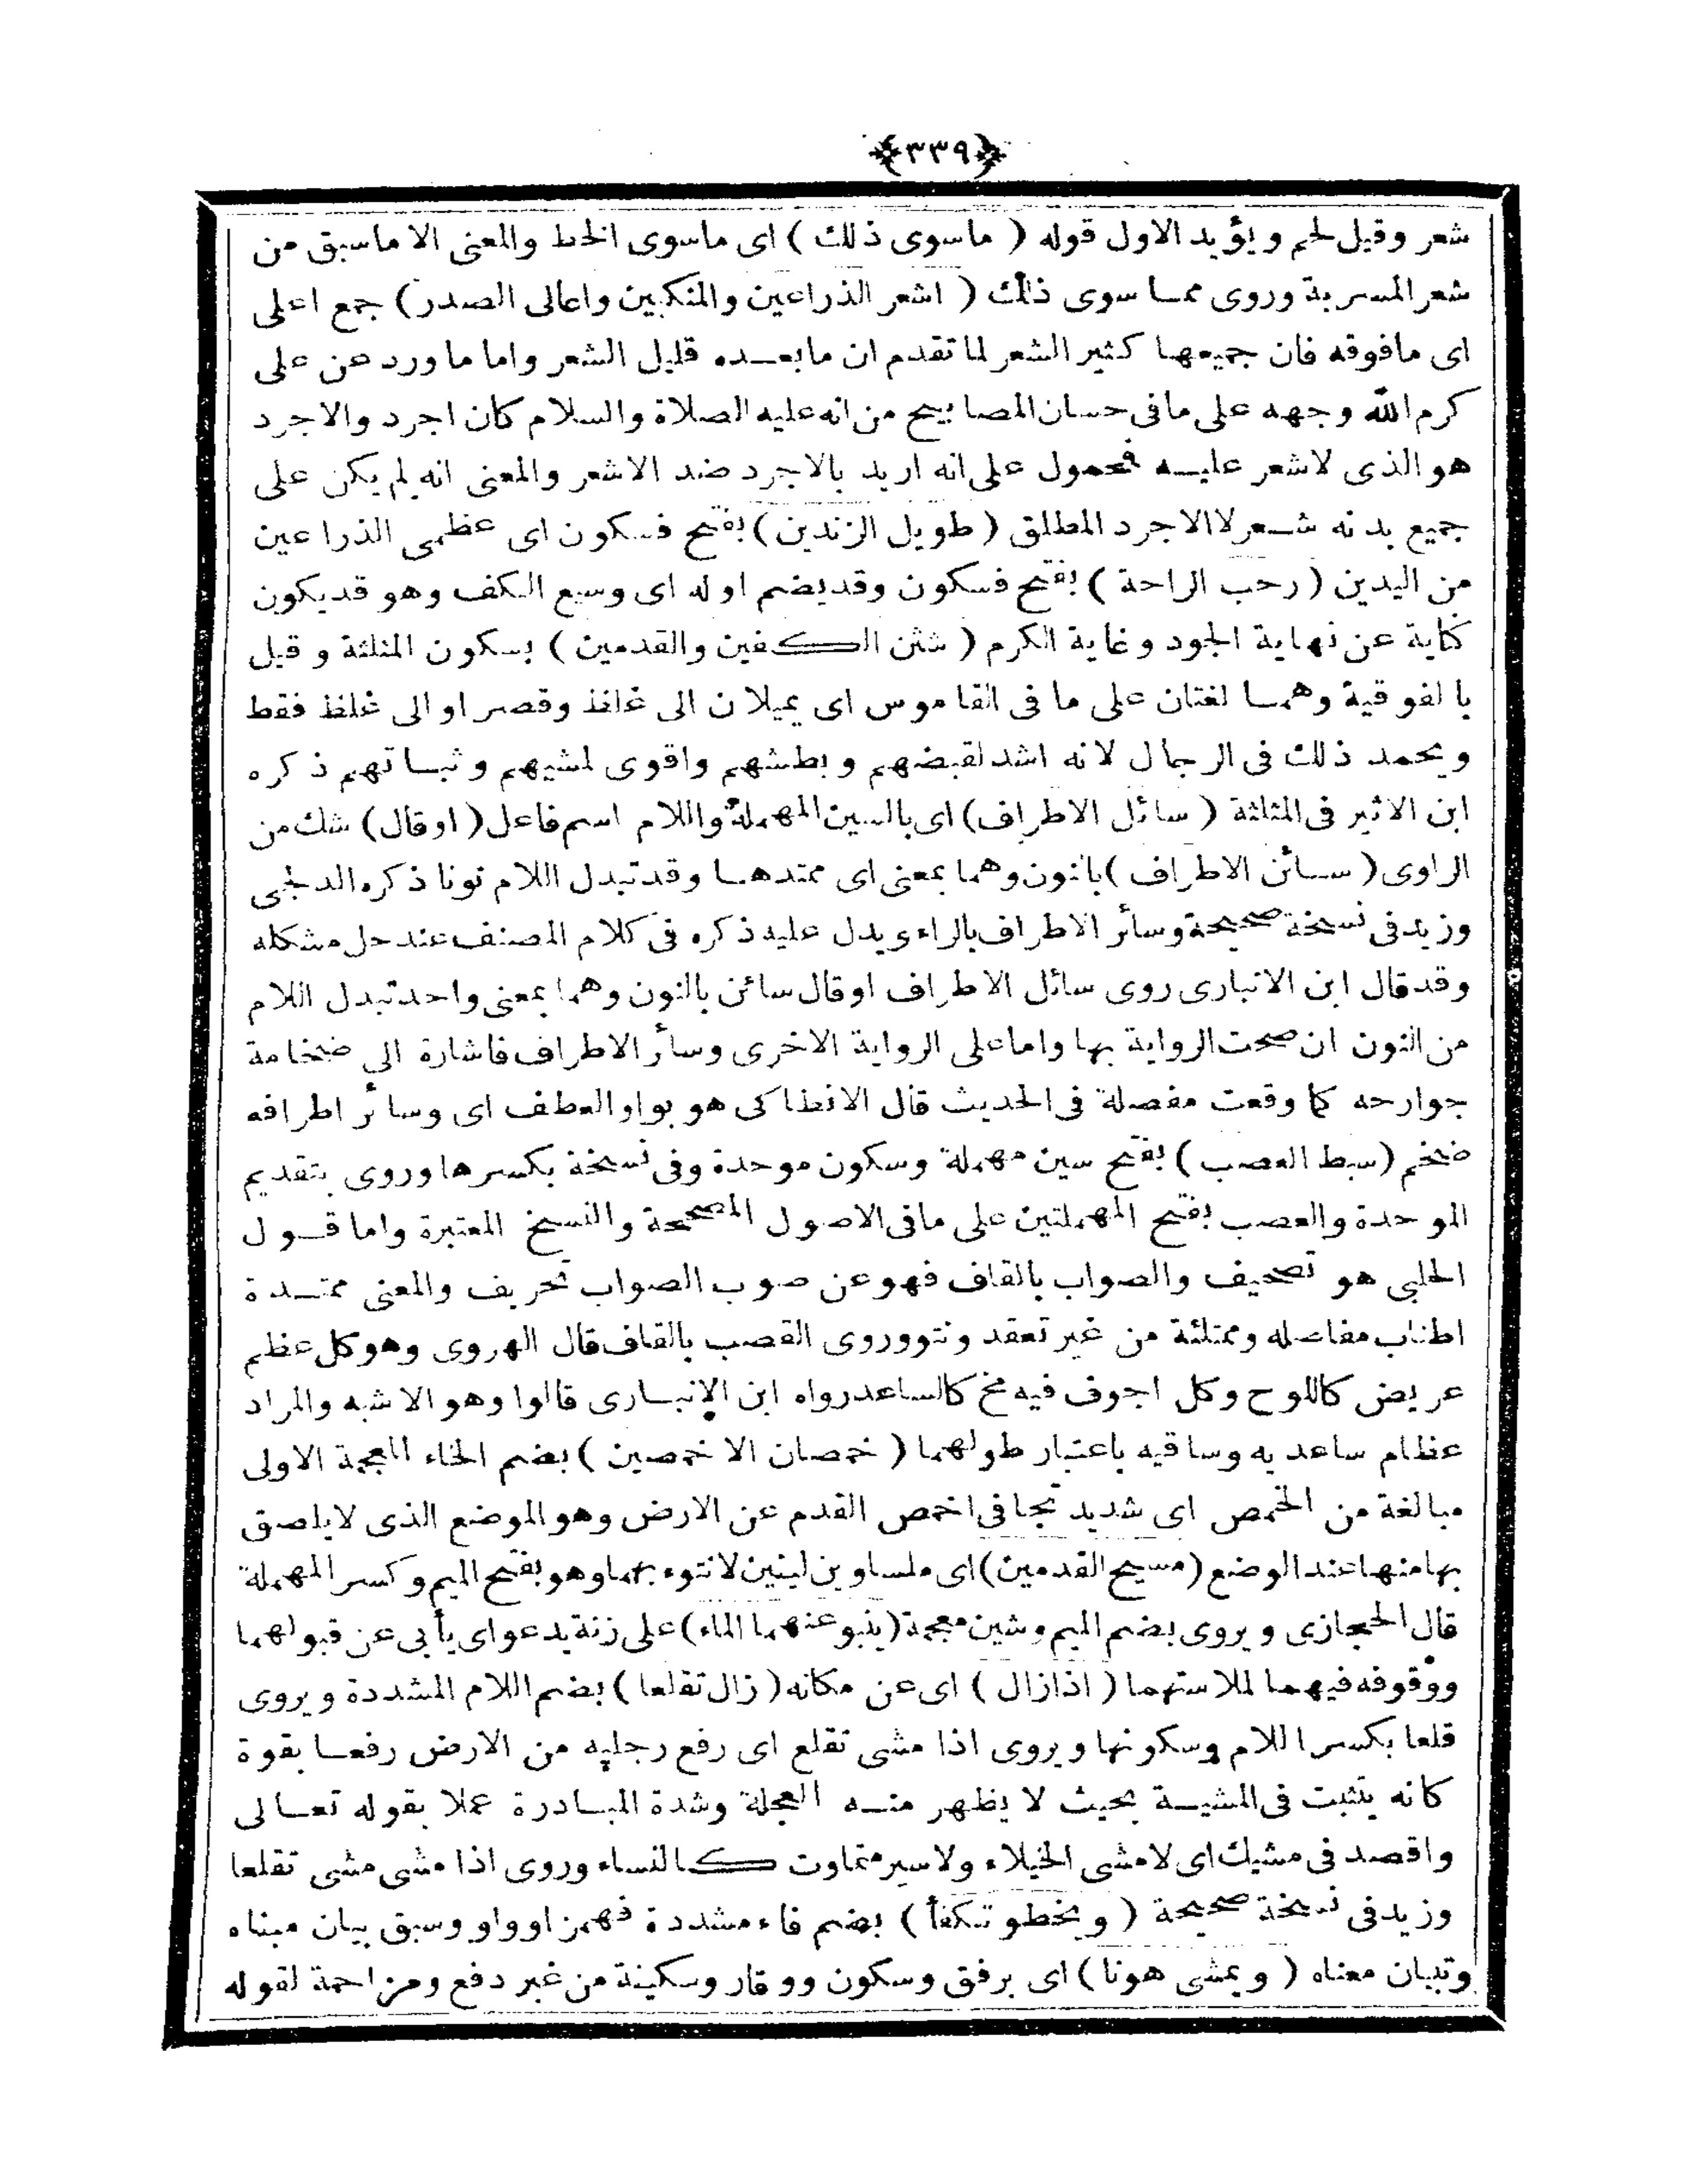 ﴿٣٣٩﴾
شعر وقيل لحم ويؤيد الاول قوله ( ماسوى ذلك ) اى ماسوى الخط والمعنى الا ماسبق من
شعر المسربة وروى ممـا سوى ذلك ( اشعر الذراعين والمنكبين واعالى الصدر ) جمع اعلى
اى مافوقه فان جميعها كثير الشعر لما تقدم ان مابعـده قليل الشعر واما ما ورد عن على
كرم الله وجهه على مافى حسان المصابيح من انه عليه الصلاة والسلام كان اجرد والاجرد
هو الذى لاشعر عليـه فمحمول على انه اريد بالاجرد ضد الاشعر والمعنى انه لم يكن على
جميع بدنه شـعر لاالاجرد المطلق ( طويل الزندين ) بفتح فسكون اى عظمى الذراعين
من اليدين ( رحب الراحة ) بفتح فسكون وقد يضم اوله اى وسيع الكف وهو قد يكون
كناية عن نهاية الجود وغاية الكرم ( شثن الكفين والقدمين ) بسكون المثلثة وقيل
بالفوقية وهمـا لغتان على ما فى القاموس اى يميلان الى غلظ وقصر او الى غلظ فقط
ويحمد ذلك فى الرجال لانه اشد لقبضهم وبطشهم واقوى لمشيهم وثبـاتهم ذكره
ابن الاثير فى المثلثة ( سائل الاطراف ) اى بالسين المهملة واللام اسم فاعل ( اوقال ) شك من
الراوى ( سـائن الاطراف ) بالنون وهما بمعنى اى ممتدهـا وقد تبدل اللام نونا ذكره الدلجى
وزيد فى نسخة صحيحة وسائر الاطراف بالراء ويدل عليه ذكره فى كلام المصنف عند حل مشكله
وقد قال ابن الانبارى روى سائل الاطراف اوقال سائن بالنون وهما بمعنى واحد تبدل اللام
من النون ان صحت الرواية بها واما على الرواية الاخرى وسائر الاطراف فاشارة الى ضخامة
جوارحه كما وقعت مفصلة فى الحديث قال الانطاكى هو بواو العطف اى وسائر اطرافه
ضخم ( سبط العصب ) بفتح سين مهملة وسكون موحدة وفى نسخة بكسرها وروى بتقديم
الموحدة والعصب بفتح المهملتين على مافى الاصول المصححة والنسخ المعتبرة واما قـول
الحلبى هو تصحيف والصواب بالقاف فهو عن صوب الصواب تحريف والمعنى ممتـدة
اطناب مفاصله وممتلئة من غير تعقد ونتو وروى القصب بالقاف قال الهروى وهو كل عظم
عريض كاللوح وكل اجوف فيه مخ كالساعد رواه ابن الانبـارى قالوا وهو الاشبه والمراد
عظام ساعديه وساقيه باعتبار طولهما ( خمصان الاخمصين ) بضم الخاء المعجمة الاولى
مبالغة من الخمص اى شديد تجافى اخمص القدم عن الارض وهو الموضع الذى لايلصق
بهامنها عند الوضع ( مسيح القدمين ) اى ملساوين لينين لانتوء بهما وهو بفتح الميم وكسر المهملة
قال الحجازى ويروى بضم الميم وشين معجمة ( ينبو عنهما الماء ) على زنة يدعو اى يأبى عن قبولهما
ووقوفه فيهما لملاستهما ( اذا زال ) اى عن مكانه ( زال تقلعا ) بضم اللام المشددة ويروى
قلعا بكسر اللام وسكونها ويروى اذا مشى تقلع اى رفع رجليه من الارض رفعـا بقوة
كانه يتثبت فى المشيـة بحيث لا يظهر منـه العجلة وشدة المبـادرة عملا بقوله تعـالى
واقصد فى مشيك اى لامشى الخيلاء ولاسير متماوت كالنساء وروى اذا مشى مشى تقلعا
وزيد فى نسخة صحيحة ( ويخطو تكفأ ) بضم فاء مشددة فهمز او واو وسبق بيان مبناه
وتبيان معناه ( ويمشى هونا ) اى برفق وسكون ووقار وسكينة من غير دفع ومزاحمة لقوله